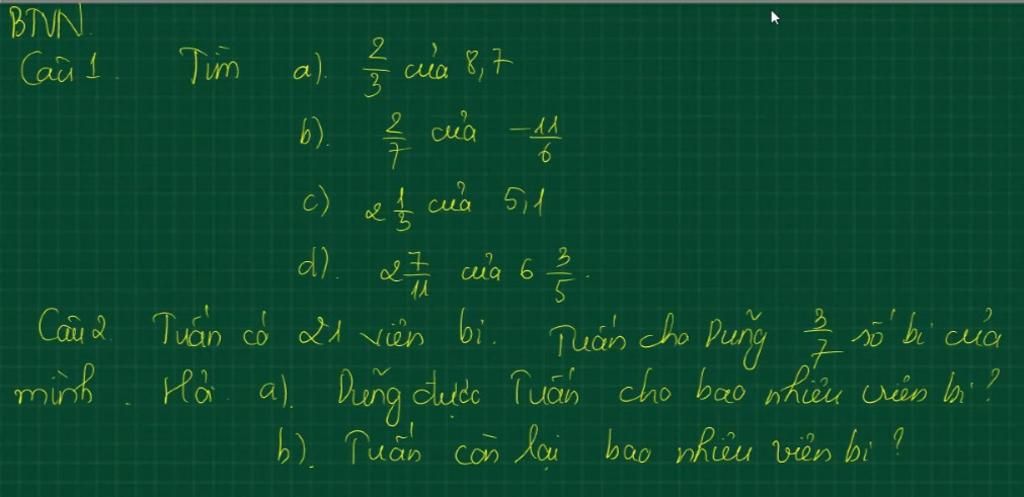 BTVN.
Câu 1. Tìm a). 2/3 của 8,7
b). 2/7 của -11/6
c) 2 1/3 của 5,1
d). 2 7/11 của 6 3/5.
Câu 2 Tuấn có 21 viên bi. Tuấn cho Dũng 3/7 số bi của
mình. Hỏi a). Dũng được Tuấn cho bao nhiêu viên bi?
b). Tuấn còn lại bao nhiêu viên bi?